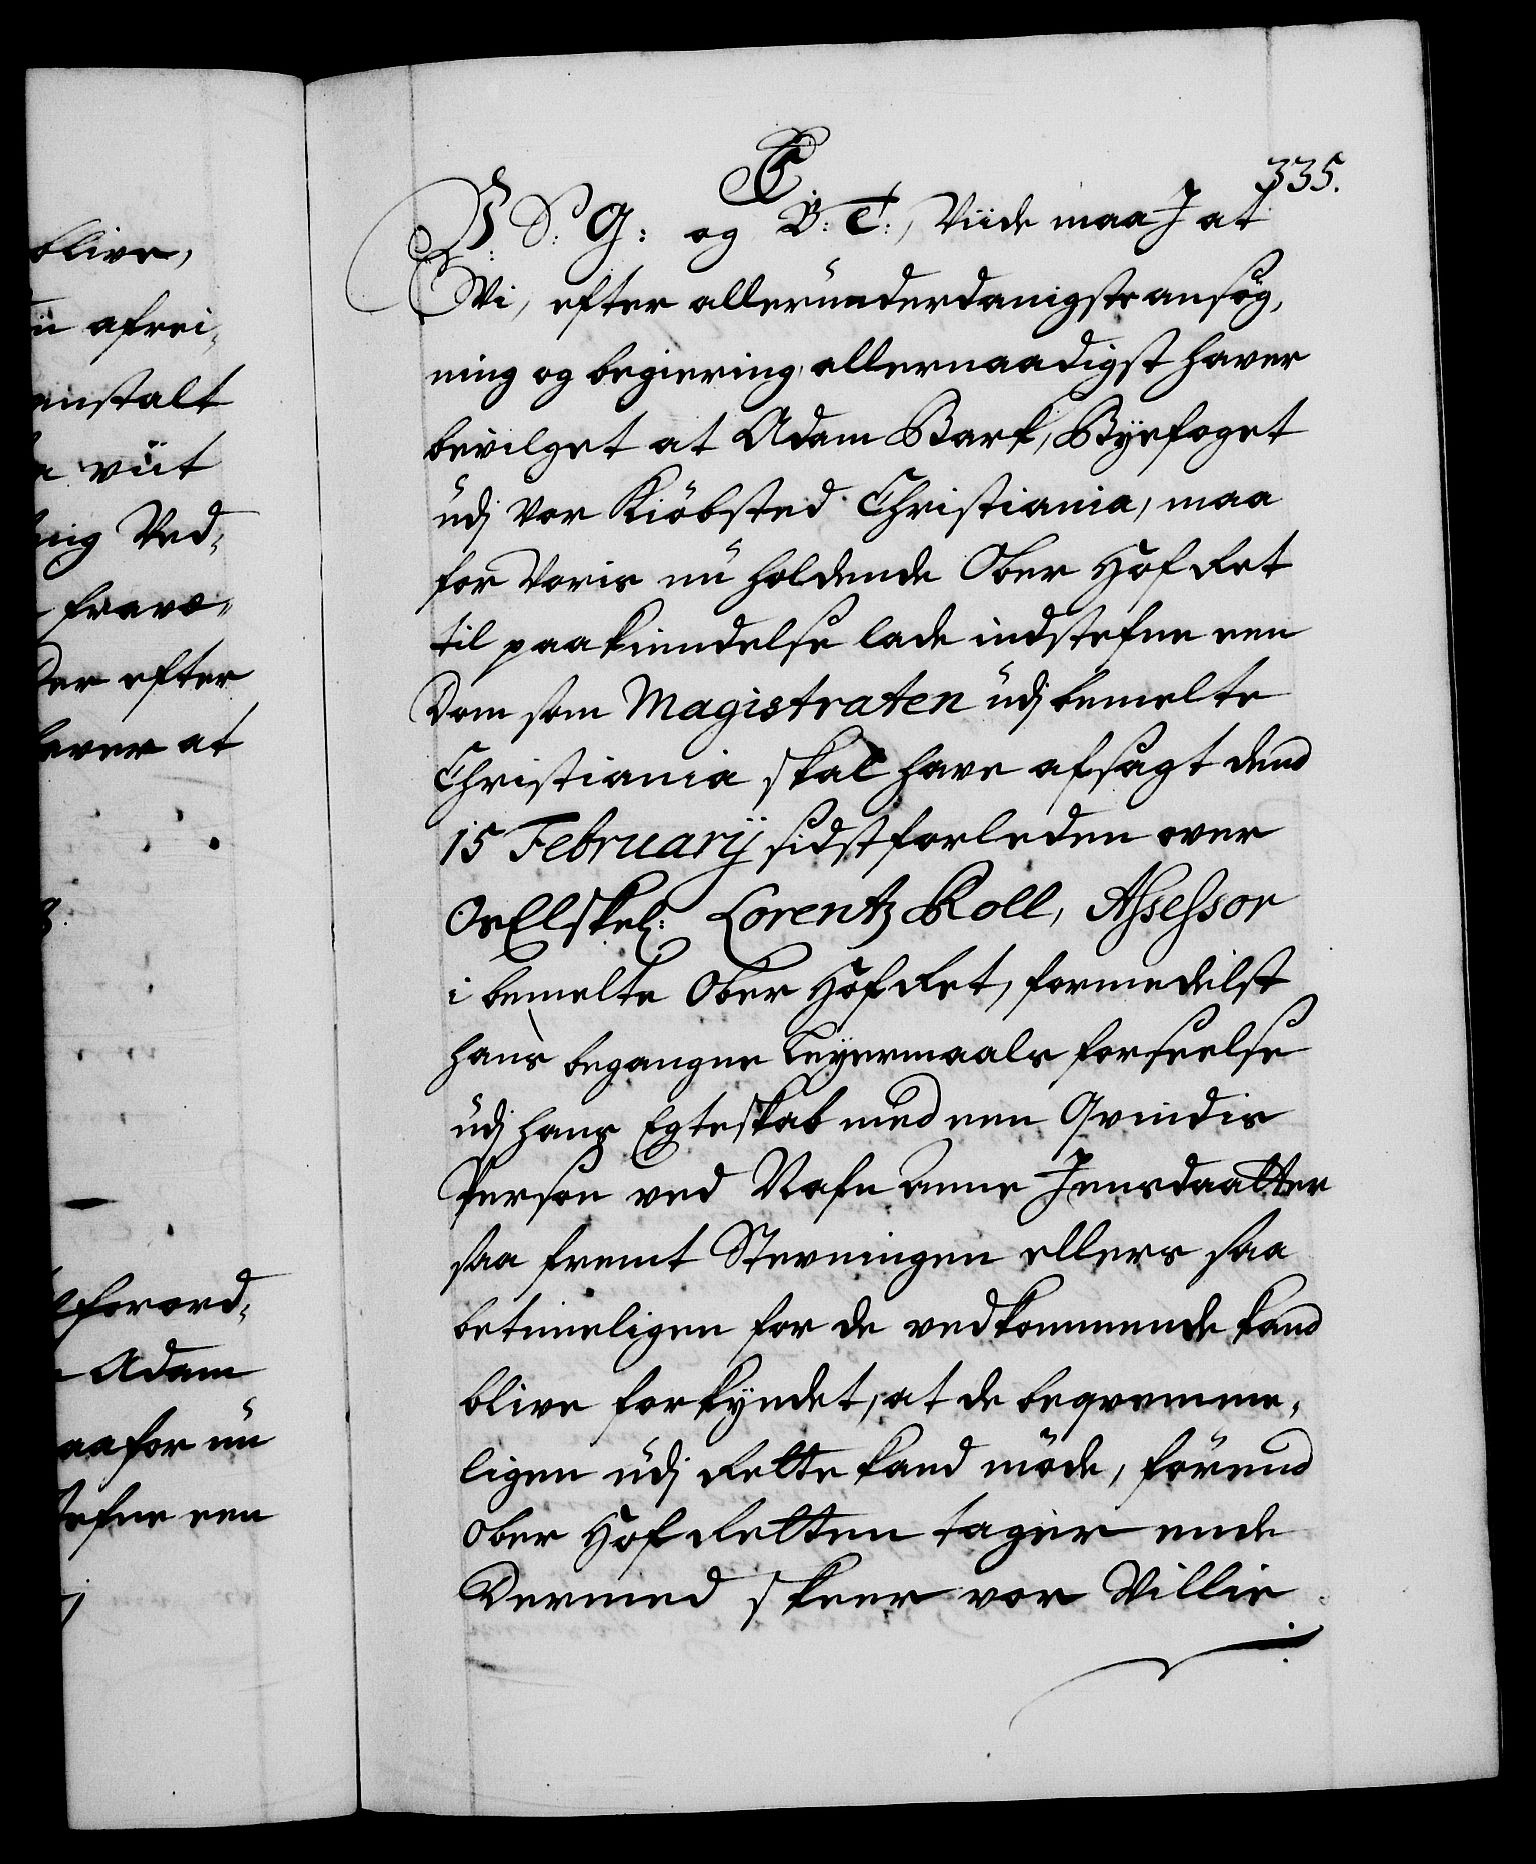 335.
C
P: S: G: og B: T:, Viide maa I at
Vi, efter alleründerdanigste ansög,
ning og begiering, allernaadigst haver
bevilget at Adam Bark, Byefoget
üdj vor Kiöbsted Christiania, maa
for Voris nü holdende Ober Hof Ret
til paakiendelse lade indstefne een
Dom som Magistraten üdj bemelte
Christiania skal have afsagt dend
15 Februarij sidstforleden over
Os Elskel: Lorentz Roll, Assessor
i bemelte Ober Hof Ret, formedelst
hans begangne Leyermaals forseelse
üdj hans Egteskab med een Qvindis
Person ved Nafn Anne Jensdaatter
saa fremt Stevningen ellers saa
betimeligen for de vedkommende kand
blive forkyndet, at de beqvemme,
ligen üdj Rette kand möde, förend
Ober Hof Retten tager ende
Dermed skeer vor Villie
blive,
ü afrei,
anstalt
viit
nig Ved,
fravæ,
Der efter
haver at
forord,
Adam
aa for nü
stefne een